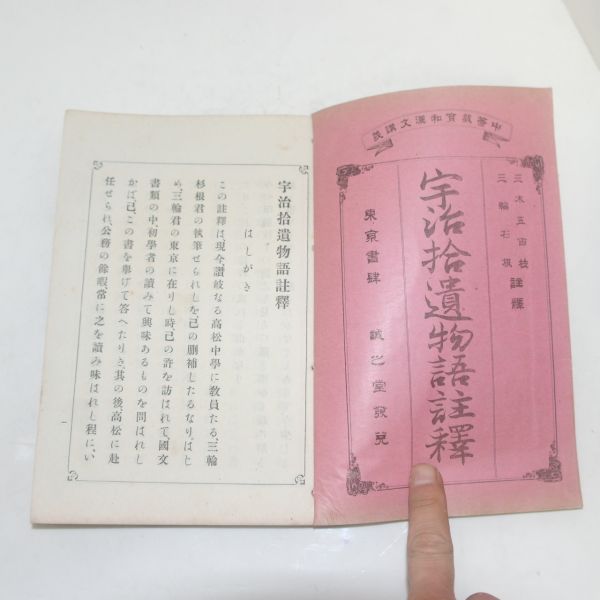 中等敎育和漢文講義
三木五百枝
三輪杉根
註釋
宇治拾遺物語註釋
東京書肆 誠之堂發兌
宇治拾遺物語註釋
はしがき
この註釋は、現今、讃岐なる高松中學に敎員たる、三輪
杉根君の執筆せられしを、己の刪補したるなり、はじ
め三輪君の東京に在りし時、己の許を訪はれて、國文
書類の中、初學者の讀みて興味あるものを問はれし
かば、己、この書を擧げて答へたりき、其の後高松に赴
任せられ、公務の餘暇、常に之を讀み味はれし程に、い
一